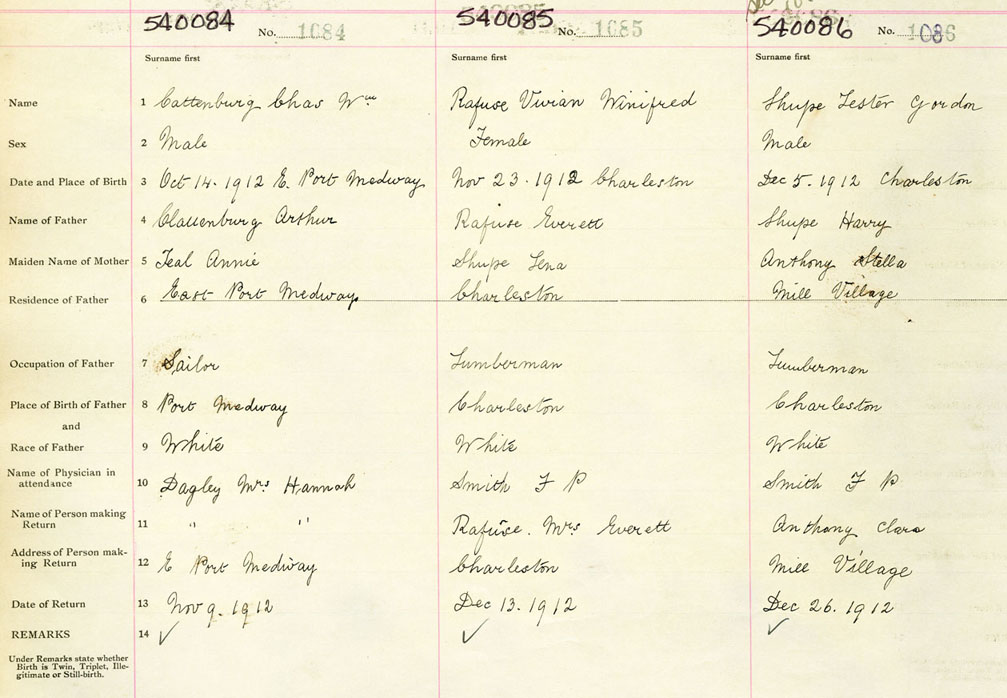 540084 No. 1084 540085 No. 1085 540086 No. 1086
Surname first Surname first Surname first
Name 1 Cattenburg Chas Wm Rafuse Vivian Winifred Shupe Lester Gordon
Sex 2 Male Female Male
Date and Place of Birth 3 Oct 14. 1912 E. Port Medway Nov 23. 1912 Charleston Dec 5. 1912 Charleston
Name of Father 4 Clattenburg Arthur Rafuse Everett Shupe Harry
Maiden Name of Mother 5 Teal Annie Shupe Lena Anthony Stella
Residence of Father 6 East Port Medway Charleston Mill Village
Occupation of Father 7 Sailor Lumberman Lumberman
Place of Birth of Father 8 Port Medway Charleston Charleston
and
Race of Father 9 White White White
Name of Physician in
attendance 10 Dagley Mrs Hannah Smith F P Smith F P
Name of Person making
Return 11 " " Rafuse. Mrs Everett Anthony Clara
Address of Person mak-
ing Return 12 E Port Medway Charleston Mill Village
Date of Return 13 Nov 9. 1912 Dec 13. 1912 Dec 26. 1912
REMARKS 14 ✓ ✓ ✓
Under Remarks state whether
Birth is Twin, Triplet, Ille-
gitimate or Still-birth.